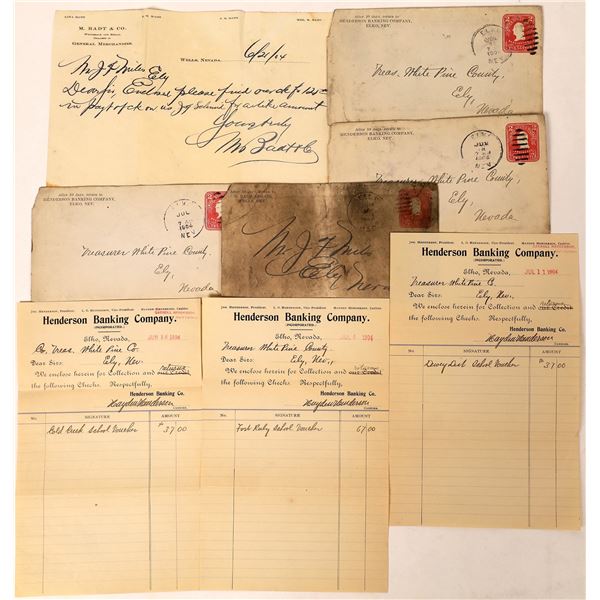 M. BADT & CO.
GENERAL MERCHANDISE.
WELLS, NEVADA. 6/21/14
Mr J F Miles Ely
Dear Sir, Enclose please find our ck for
in payt of ck on us for amount
Yours truly
M Badt & Co
After 10 days return to
HENDERSON BANKING COMPANY,
ELKO, NEV.
Treas. White Pine County,
Ely,
Nevada
After 10 days return to
HENDERSON BANKING COMPANY,
ELKO, NEV.
Treasurer White Pine County,
Ely,
Nevada
After 10 days return to
HENDERSON BANKING COMPANY,
ELKO, NEV.
Treasurer White Pine County,
Ely,
Nevada
Mr J F Miles
Ely
Nevada
Henderson Banking Company.
(INCORPORATED.)
Elko, Nevada, JUL 11 1904
Treasurer White Pine Co.
Dear Sirs: Ely, Nev.
We enclose herein for Collection and returns our Credit
the following Checks. Respectfully,
Henderson Banking Co.
Hayden Henderson
CASHIER.
No. SIGNATURE AMOUNT
Dewey Dist School Voucher $ 37 00
Henderson Banking Company.
(INCORPORATED.)
Elko, Nevada,
Co. Treas. White Pine Co.
Dear Sirs: Ely, Nev.
We enclose herein for Collection and returns our Credit
the following Checks. Respectfully,
Henderson Banking Co.
Hayden Henderson
CASHIER.
No. SIGNATURE AMOUNT
Cold Creek School Voucher $ 37 00
Henderson Banking Company.
(INCORPORATED.)
Elko, Nevada, 1904
Treasurer White Pine County
Dear Sirs: Ely, Nev.
We enclose herein for Collection and returns our Credit
the following Checks. Respectfully,
Henderson Banking Co.
Hayden Henderson
CASHIER.
No. SIGNATURE AMOUNT
Fort Ruby School Voucher 67 00